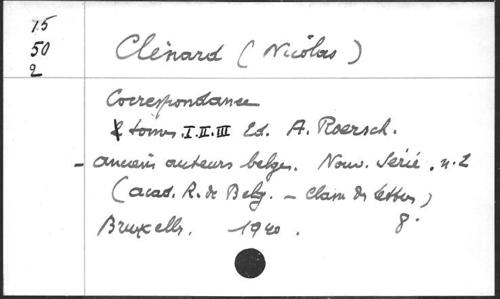 15
50
2
Clénard (Nicolas)
Correspondance
tomes. I. II. III Ed. A. Roersch.
- anciens auteurs belges. Nouv. Série. n. 2
(acad. R. de Belg. - Classe des Lettres)
Bruxelles. 1940. 8°.